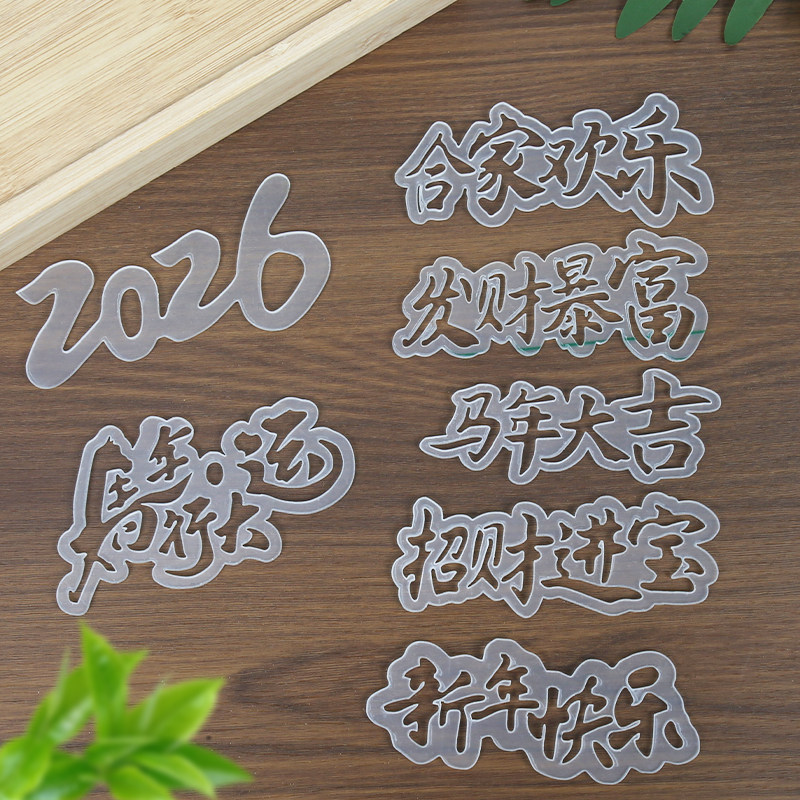 2026
年行大运
合家欢乐
发财暴富
马年大吉
招财进宝
新年快乐